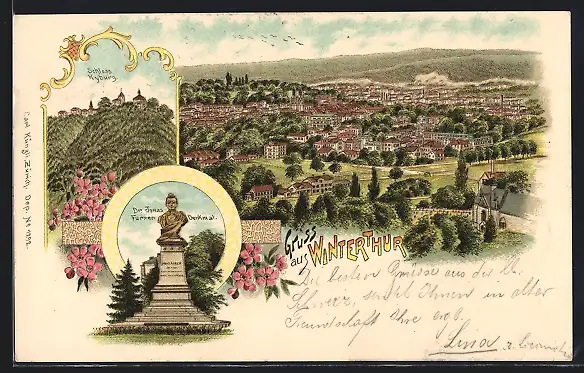 Schloss
Kyburg.
Dr Jonas
Furrer-Denkmal.
Gruss
aus WINTERTHUR
Die besten Grüsse aus der kl.
Schweiz, sendet Ihnen in alter
Freundschaft Ihre erg.
Lina
Carl Künzli, Zürich, Dep. No